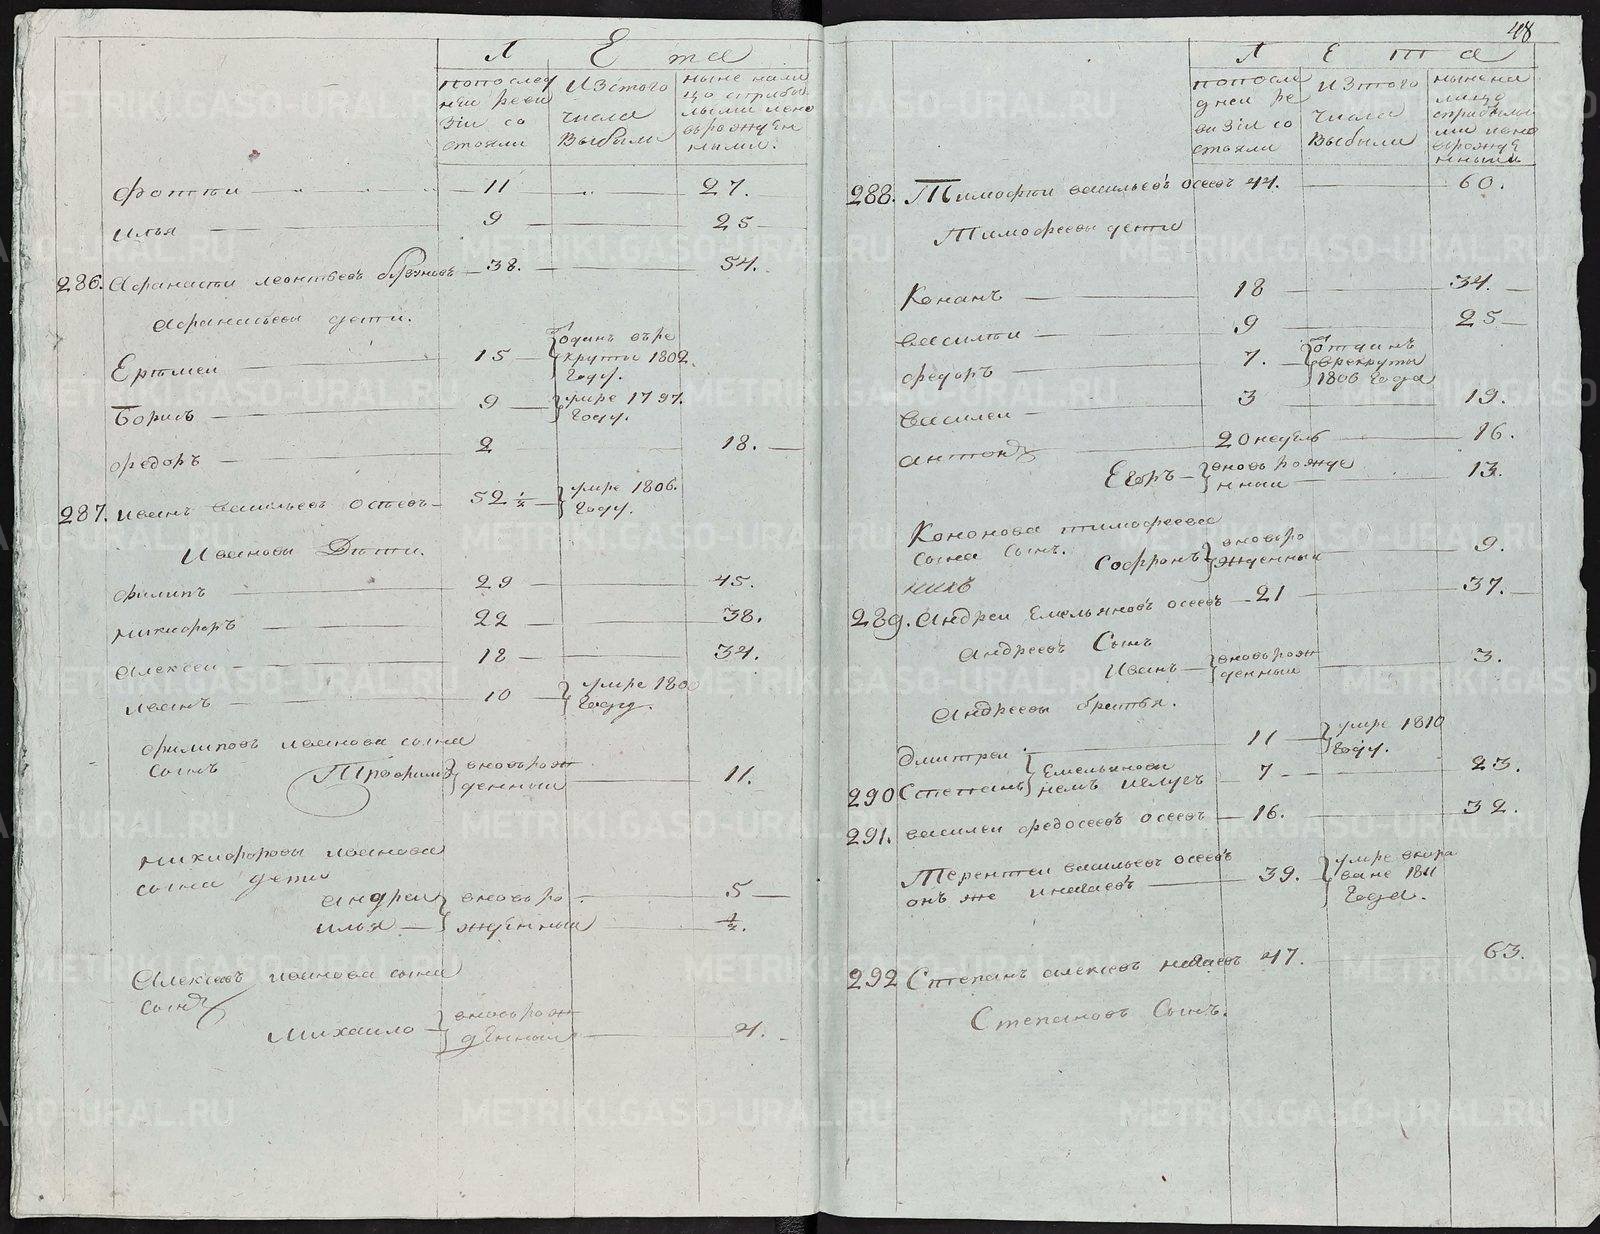 Л Ета
попослед
ней реви
зіи со
стояли
Изтого
числа
Выбыли
ныне нали
цо сприбы
лыми ино
ворожден
ными.
Фотти 11 27.
илья 9 25
286. Афанасеи леонтьевъ 38. 54.
Афанасьевы дети.
Еремеи 15 вре
крути 1802
Году.
Борисъ 9 умре 1797.
Году.
Федоръ 2 18.
287. иванъ Васильевъ Осеевъ 52 1/2 умре 1806.
Году.
Ивановы Дети.
Филипъ 29 45.
никифоръ 22 38.
алексеи 18 34.
иванъ 10 умре
Году.
Филиповъ иванова сына
сынъ Трофимъ вновьрож
денныи 11.
никифоровы иванова
сына дети
андреи вновь ро 5
илья жденныи 1/2.
Алексеевъ иванова сына
сынъ
Михаило вновьрож
денныи 4.
48
Л Е т а
попосле
дней ре
визіи со
стояли
Изтого
числа
Выбыли
нынена
лицо
сприбылы
ми ино
ворожде
нными
288. Тимофеи васильевъ осеевъ 44. 60.
Тимофеевы дети
Конанъ 18 34.
василеи 9 25
федоръ 7. отданъ
врекруты
1806 Года
Василеи 3 19.
антонъ 20 недель 16.
Егоръ вновь рожде
нныи 13.
Кононова тимофеева
сына сынъ. Софронъ вновьро
жденныи 9.
289. Андреи Емельяновъ осеевъ 21 37.
андреевъ Сынъ
Иванъ вновьрож
денныи 3.
андреевы братья.
Дмитреи 11 умре 1810
Году.
290 Степанъ Емельяновы 7 23.
291. василеи федосеевъ осеевъ 16. 32.
Терентеи васильевъ осеевъ
онъ же 39. умре
1811
Года.
292 Степанъ алексеевъ 47. 63.
Степановъ Сынъ.
METRIKI.GASO-URAL.RU